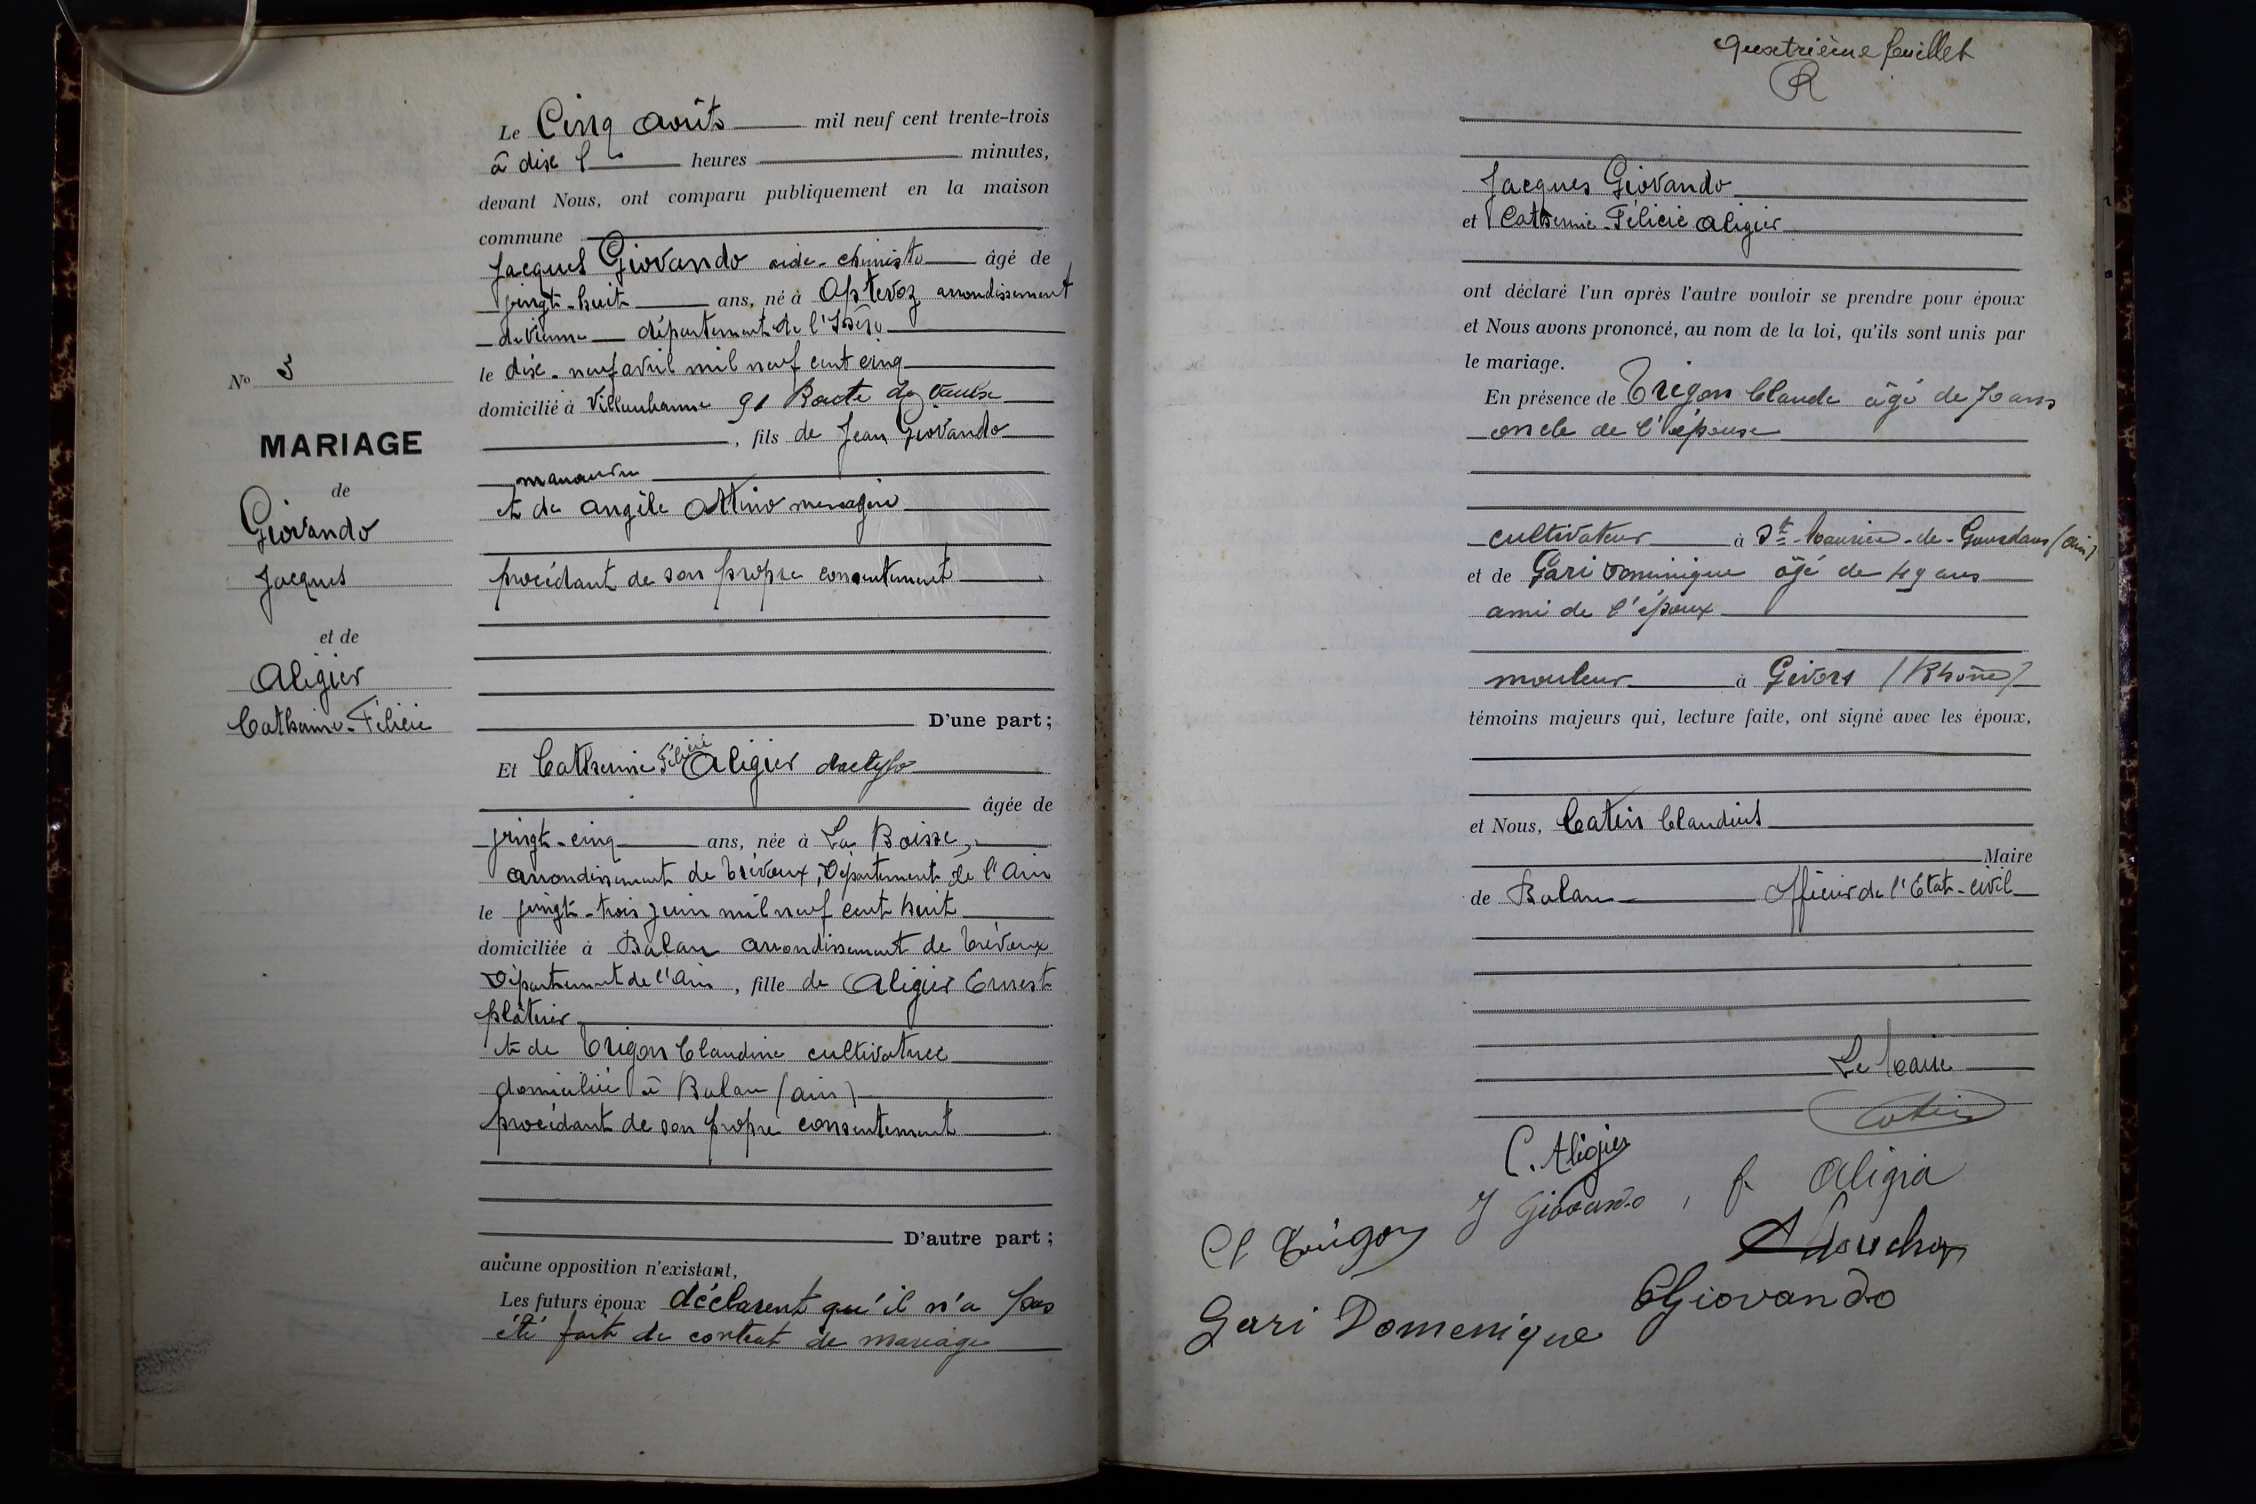 Le Cinq Août mil neuf cent trente-trois
à dix heures minutes,
devant Nous, ont comparu publiquement en la maison
commune
Jacques Giovando aide-chimiste âgé de
vingt-huit ans, né à Optevoz arrondissement
de Vienne département de l'Isère
le dix-neuf avril mil neuf cent cinq
domicilié à Villeurbanne 91 Route de Vaulx
, fils de Jean Giovando
manœuvre
et de Angèle Attino ménagère
procédant de son propre consentement
D'une part ;
Et Catherine Félicie Aligier dactylo
âgée de
vingt-cinq ans, née à La Boisse,
arrondissement de Trévoux, Département de l'Ain
le vingt-trois juin mil neuf cent huit
domiciliée à Balan arrondissement de Trévoux
Département de l'Ain, fille de Aligier Ernest
plâtrier
et de Trigon Claudine cultivatrice
domiciliée à Balan (Ain)
procédant de son propre consentement
D'autre part ;
aucune opposition n'existant,
Les futurs époux déclarent qu'il n'a pas
été fait de contrat de mariage
No 3
MARIAGE
de
Giovando
Jacques
et de
Aligier
Catherine-Félicie
quatrième feuillet
R
Jacques Giovando
et Catherine-Félicie Aligier
ont déclaré l'un après l'autre vouloir se prendre pour époux
et Nous avons prononcé, au nom de la loi, qu'ils sont unis par
le mariage.
En présence de Trigon Claude âgé de 70 ans
oncle de l'épouse
cultivateur à St-Maurice-de-Gourdans (Ain)
et de Gari Dominique âgé de 49 ans
ami de l'époux
mouleur à Givors (Rhône)
témoins majeurs qui, lecture faite, ont signé avec les époux,
et Nous, Catin Claudius
Maire
de Balan Officier de l'Etat-civil
Le Maire
Catin
C. Aligier
J Giovando, f Aligier
Cl Trigon
CGiovando
Gari Domenique